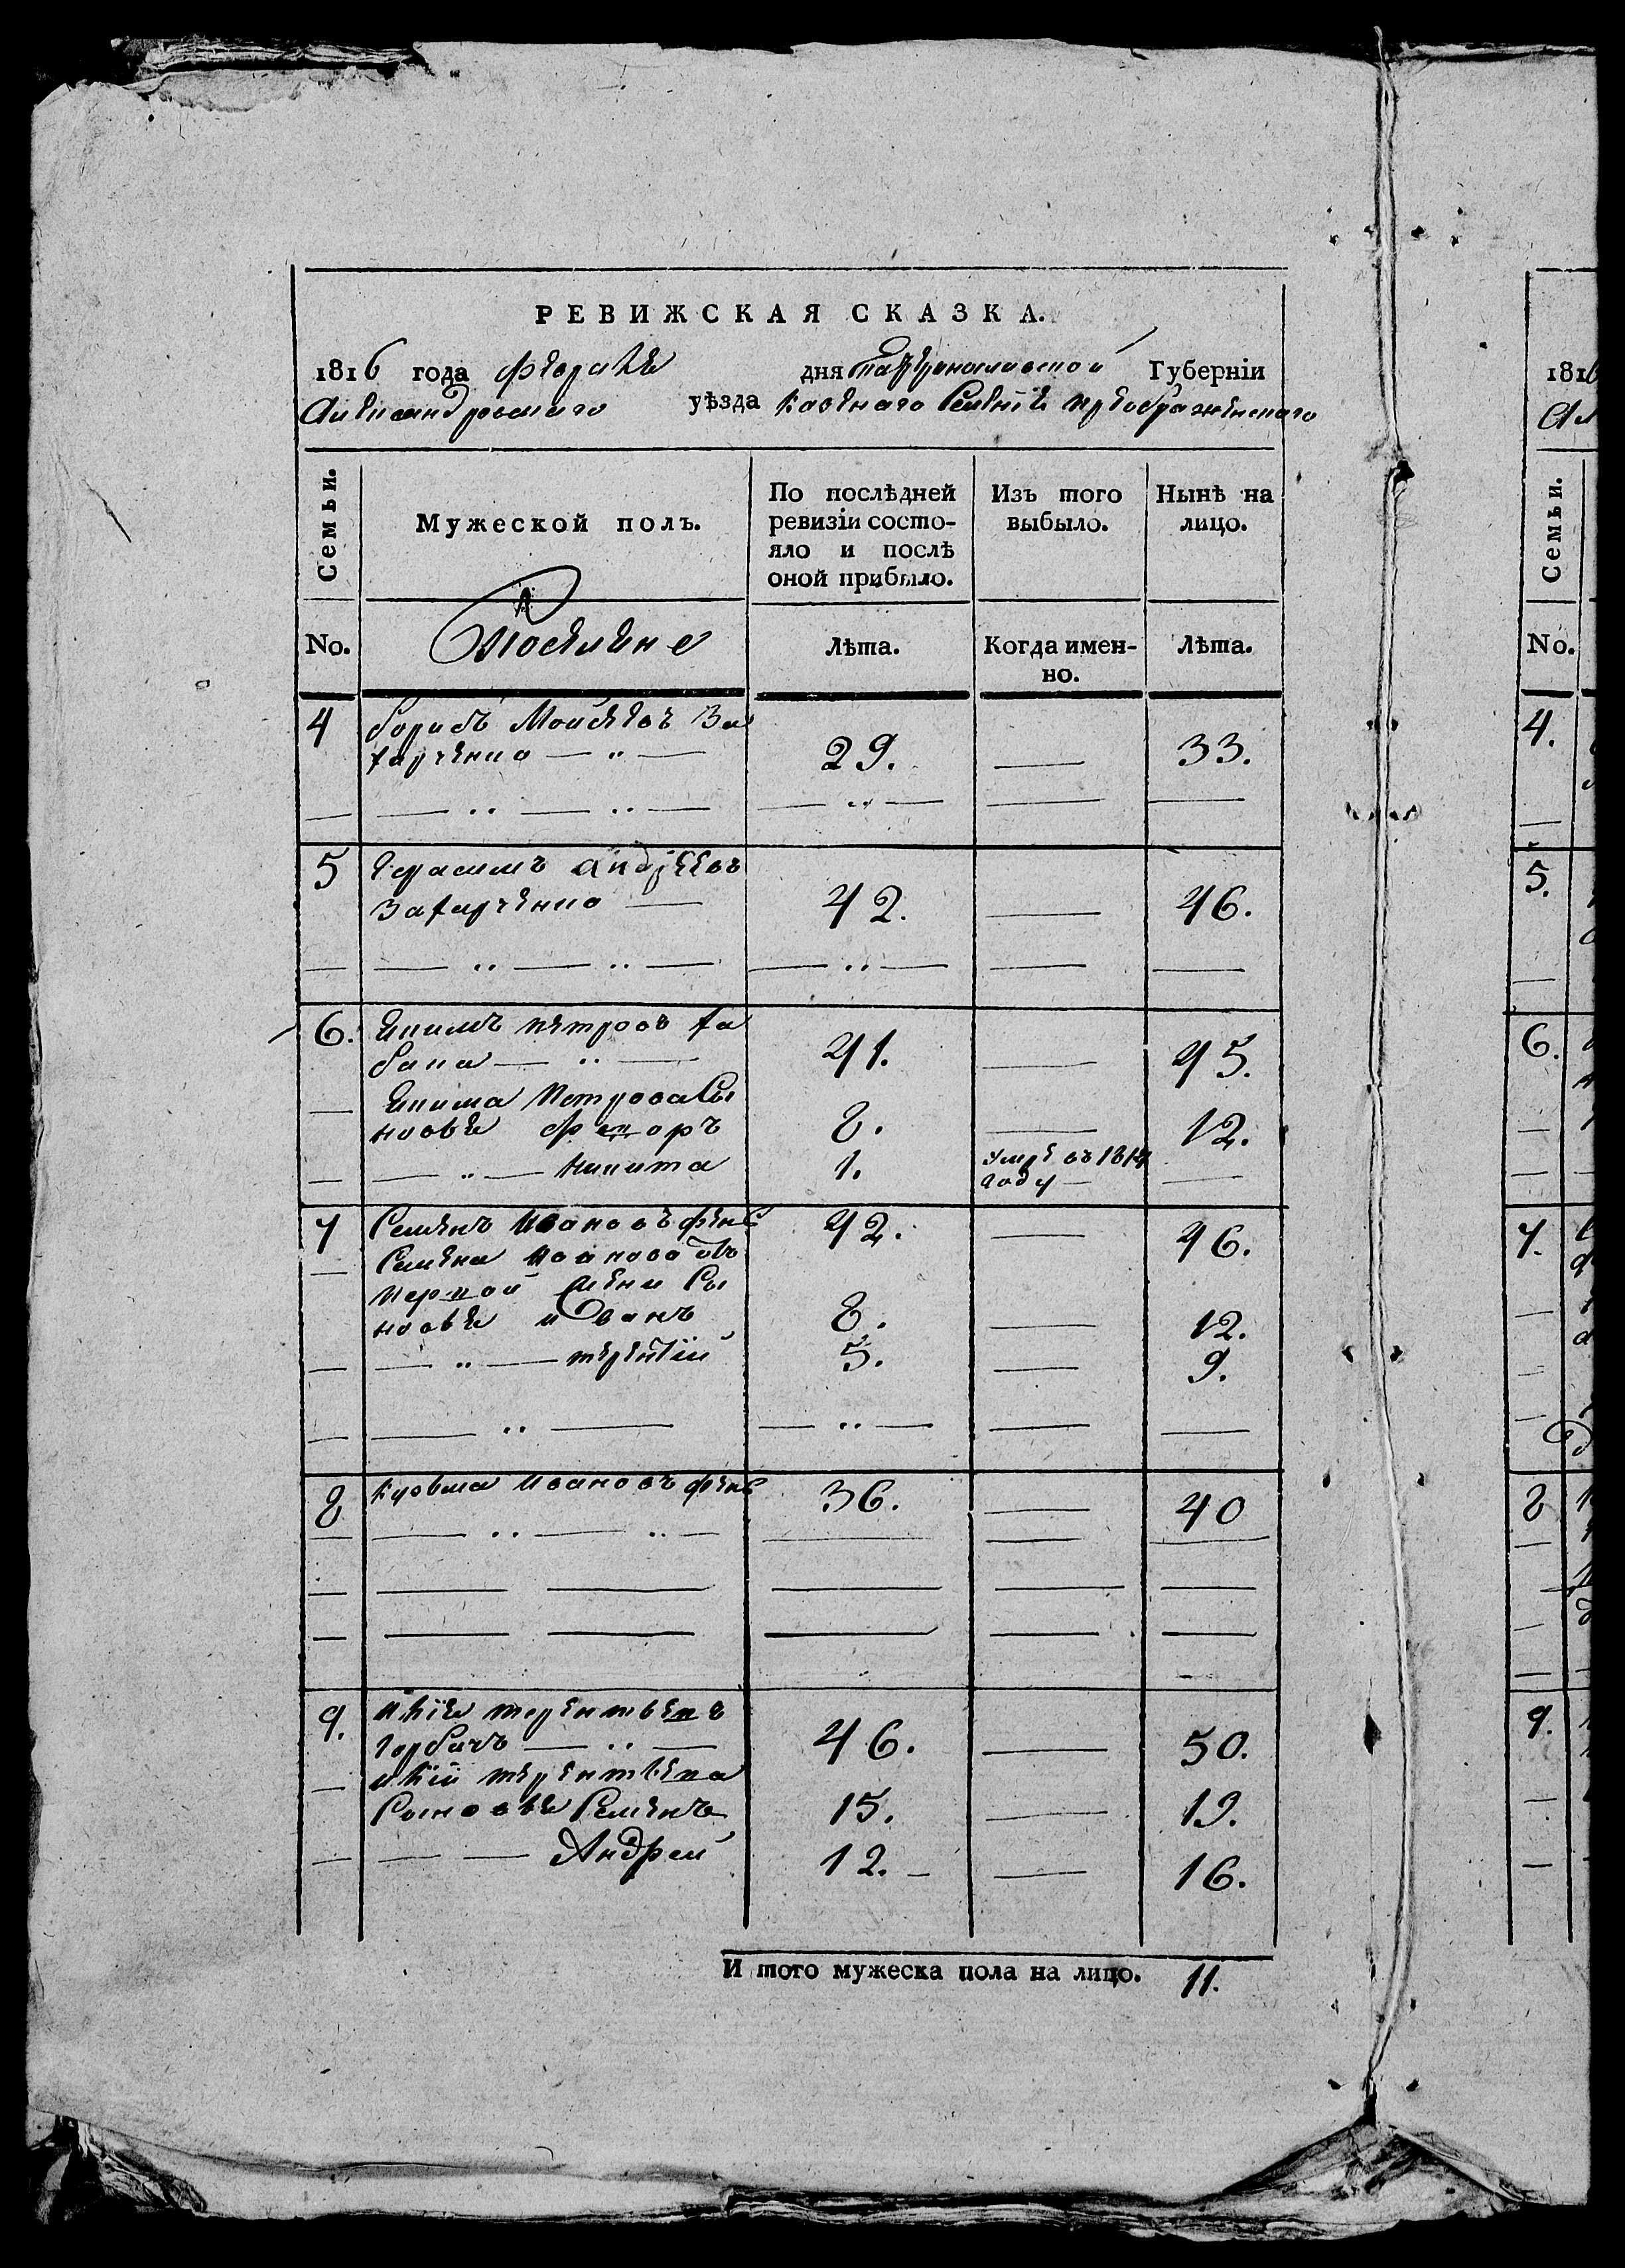 РЕВИЖСКАЯ СКАЗКА.
1816 года февраля дня Екатеринославской Губернїи
Александровскаго уѣзда казенаго Селенїя преображенскаго
Семьи. Мужеской полъ. По послѣдней ревизїи состояло и послѣ оной прибыло. Изъ того выбыло. Нынѣ на лицо.
No. Поселяне Лѣта. Когда именно. Лѣта.
4 борисъ Мойсѣевъ За
харченко 29. 33.
5 Герасимъ андрѣевъ
Захарченко 42. 46.
6. Екимъ петровъ ха
бака 41. 45.
Екима Петрова Сы
новья федоръ 8. 12.
Никита 1. умре въ 1814
году
7 Семенъ Ивановъ 42. 46.
Семена Иванова отъ
первой жени Сы
новья иванъ 8. 12.
терентїй 5. 9.
8 Кузьма Ивановъ 36. 40
9. терентьевъ
горбачъ 46. 50.
терентьева
Сыновья Семенъ 15. 19.
Андрей 12. 16.
И того мужеска пола на лицо. 11.
181
Семьи.
No.
4.
5.
6.
7.
8
9.